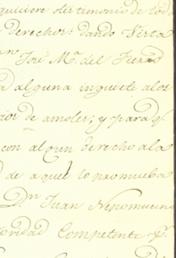 quiviere testimonio de tod
derechos dando Cerca
José Mª. del Fierro
a alguna inquiete a los
de amoler; y para q
con algun derecho a la
d de aquel lo promueba
Dn. Juan Nepomuceno
toridad Competente y